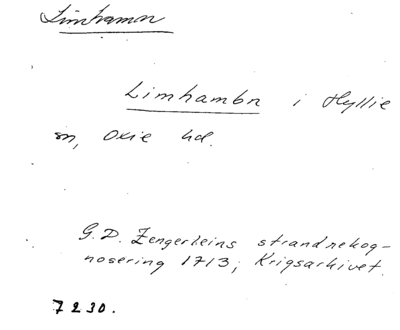 Limhamn
Limhambn i Hyllie
sn, Oxie hd.
G. D. Zengerleins strandrekog-
nosering 1713; Krigsarkivet.
7230.